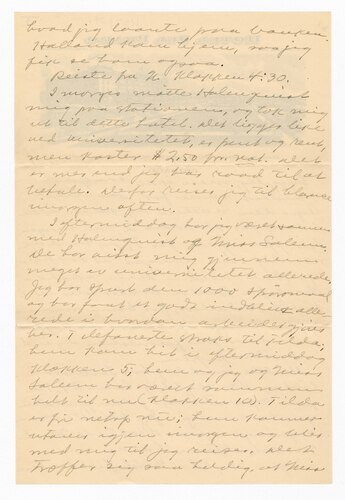 hvad jeg laante paa banken.
Halland kom hjem, saa jeg
fik se ham ogsaa.
Reiste fra N. klokken 4:30.
I morges mötte Holmquist
mig paa stationen, og tok mig
ut til dette hotel. Det ligger like
ved universitetet, er pent og rent,
men koster $2.50 pr. nat. Det
er mer end jeg har raad til at
betale. Derfor reiser jeg til
imorgen aften.
I eftermiddag har jeg været sammen
med Holmquist og Miss Saleem.
De har vist mig gjennem
meget av universitetet allerede.
Jeg har spurt dem 1000 spörsmaal
og har faaet et godt indblik alle-
rede i hvordan arbeidet gjöres
her. Telefonerte straks til Tilda;
hun kom hit i eftermiddag
klokken 5; hun og jeg og Miss
Saleem har været sammen
helt til nu klokken 10. Tilda
er gik netop nu; hun kommer
igjen imorgen og blir
med mig til jeg reiser. Det
træffer sig saa heldig, at Miss